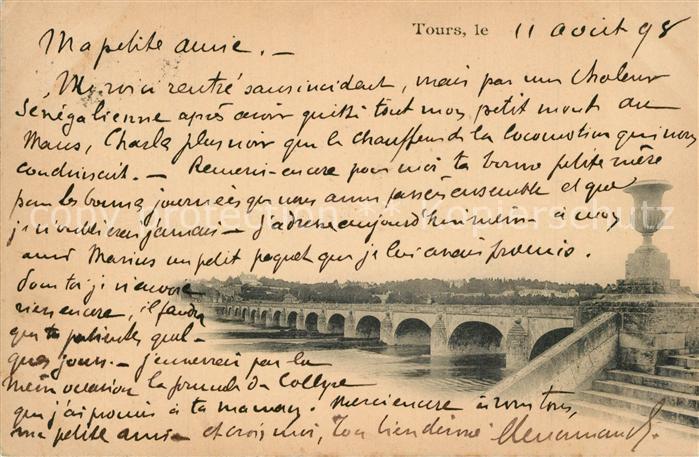 Tours, le 11 aout 98
Ma petite amie. —
Me voici rentré sans incident, mais par une chaleur
Sénégalienne après avoir quitté tout mon petit monde au
Mans, Charles plus noir que le chauffeur de la locomotive qui nous
conduisait. — Remercie encore pour moi ta bonne petite mère
pour les bonnes journées que nous avons passées ensemble et que
je n'oublierai jamais — j'adresse aujourd'hui même à mon
ami Marius un petit paquet que je lui avais promis.
Pour toi je n'envoie
rien encore, il faudra
que tu patientes quel-
ques jours. — j'enverrai par la
même occasion la formule du Collyre
que j'ai promis à ta maman. Merci encore à vous tous,
ma petite amie — et crois moi, Ton bien dévoué
copy protection by Kopierschutz